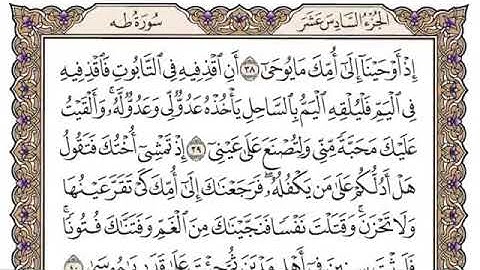 الجزء السادس عشر
سورة طه
إِذْ أَوْحَيْنَا إِلَىٰ أُمِّكَ مَا يُوحَىٰ ٣٨ أَنِ ٱقْذِفِيهِ فِي ٱلتَّابُوتِ فَٱقْذِفِيهِ
فِي ٱلْيَمِّ فَلْيُلْقِهِ ٱلْيَمُّ بِٱلسَّاحِلِ يَأْخُذْهُ عَدُوٌّ لِّي وَعَدُوٌّ لَّهُۥ ۚ وَأَلْقَيْتُ
عَلَيْكَ مَحَبَّةً مِّنِّي وَلِتُصْنَعَ عَلَىٰ عَيْنِي ٣٩ إِذْ تَمْشِي أُخْتُكَ فَتَقُولُ
هَلْ أَدُلُّكُمْ عَلَىٰ مَن يَكْفُلُهُۥ ۖ فَرَجَعْنَاكَ إِلَىٰ أُمِّكَ كَيْ تَقَرَّ عَيْنُهَا
وَلَا تَحْزَنَ ۚ وَقَتَلْتَ نَفْسًا فَنَجَّيْنَاكَ مِنَ ٱلْغَمِّ وَفَتَنَّاكَ فُتُونًا ۚ
فَلَبِثْتَ سِنِينَ فِي أَهْلِ مَدْيَنَ ثُمَّ جِئْتَ عَلَىٰ قَدَرٍ يَا مُوسَىٰ ٤٠